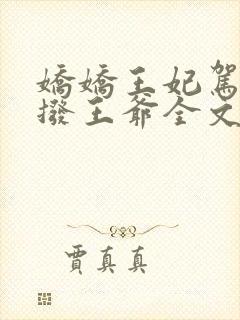 嬌嬌王妃駕
撥王爺全文
賈真真